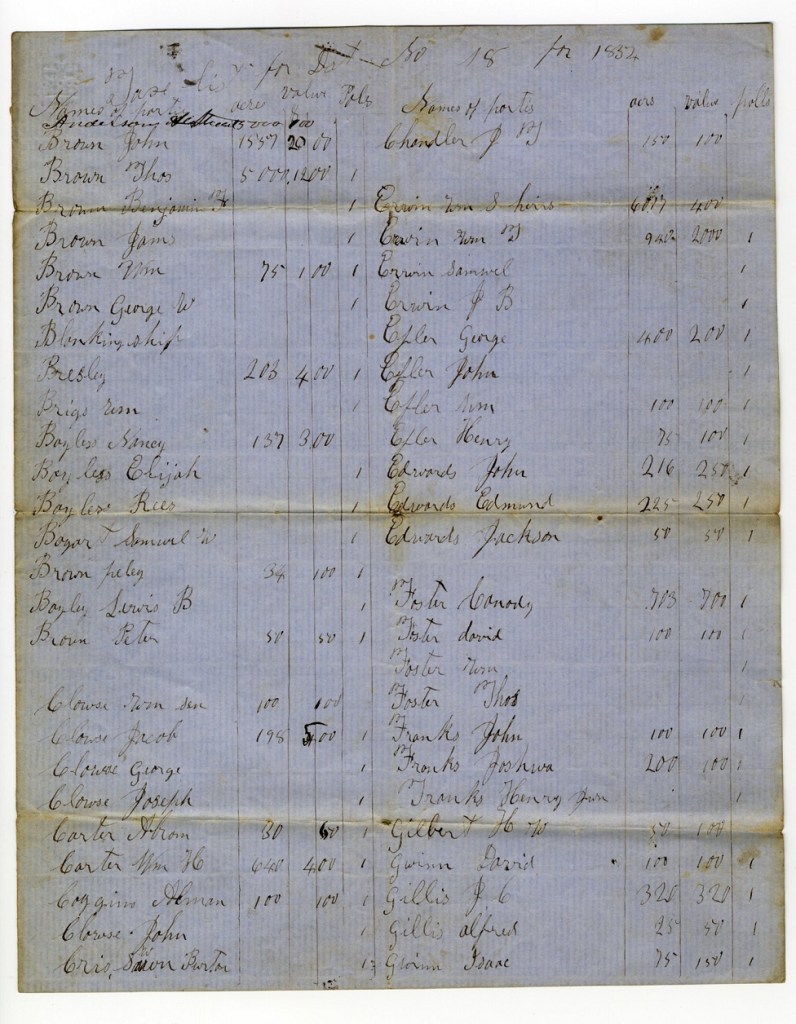 Tax List for Dist No 18 for 1852
Names of partis acre value Pols
Anderson 5000 500
Brown John 1557 2000
Brown Thos 5000 1200 1
Brown Benjamin F 1
Brown Jams 1
Brown Wm 75 100 1
Brown George W 1
Blankingship
Bresley 203 400 1
Brigs Wm 1
Bayless Nancy 137 300
Bayless Elijah 1
Bayless Rees 1
Bogart Samuel W 1
Brown peley 34 100 1
Bayley Lewis B 1
Brown Peter 50 50 1
Clowse Wm sen 100 100
Clowse Jacob 198 500 1
Clowse George 1
Clowse Joseph 1
Carter Abrom 80 60 1
Carter Wm H 640 400 1
Coggins Alman 100 100 1
Clowse John 1
Burton 13
Names of partis acrs value polls
Chandler J T 150 100
Erwin Wm S heirs 400
Erwin Wm T 940 2000 1
Erwin Samuel 1
Erwin J B 1
Efler George 400 200 1
Efler John 1
Efler Wm 100 100 1
Efler Henry 75 100 1
Edwards John 216 250 1
Edwards Edmund 225 250 1
Edwards Jackson 50 50 1
Foster Canody 703 700 1
Foster david 100 100 1
Foster Wm 1
Foster Thos 1
Franks John 100 100 1
Franks Joshua 200 100 1
Franks Henry Jun 1
Gilbert H W 50 100
Gwinn David 100 100 1
Gillis J C 320 320 1
Gillis alfred 25 50 1
Gwinn Isaac 75 150 1